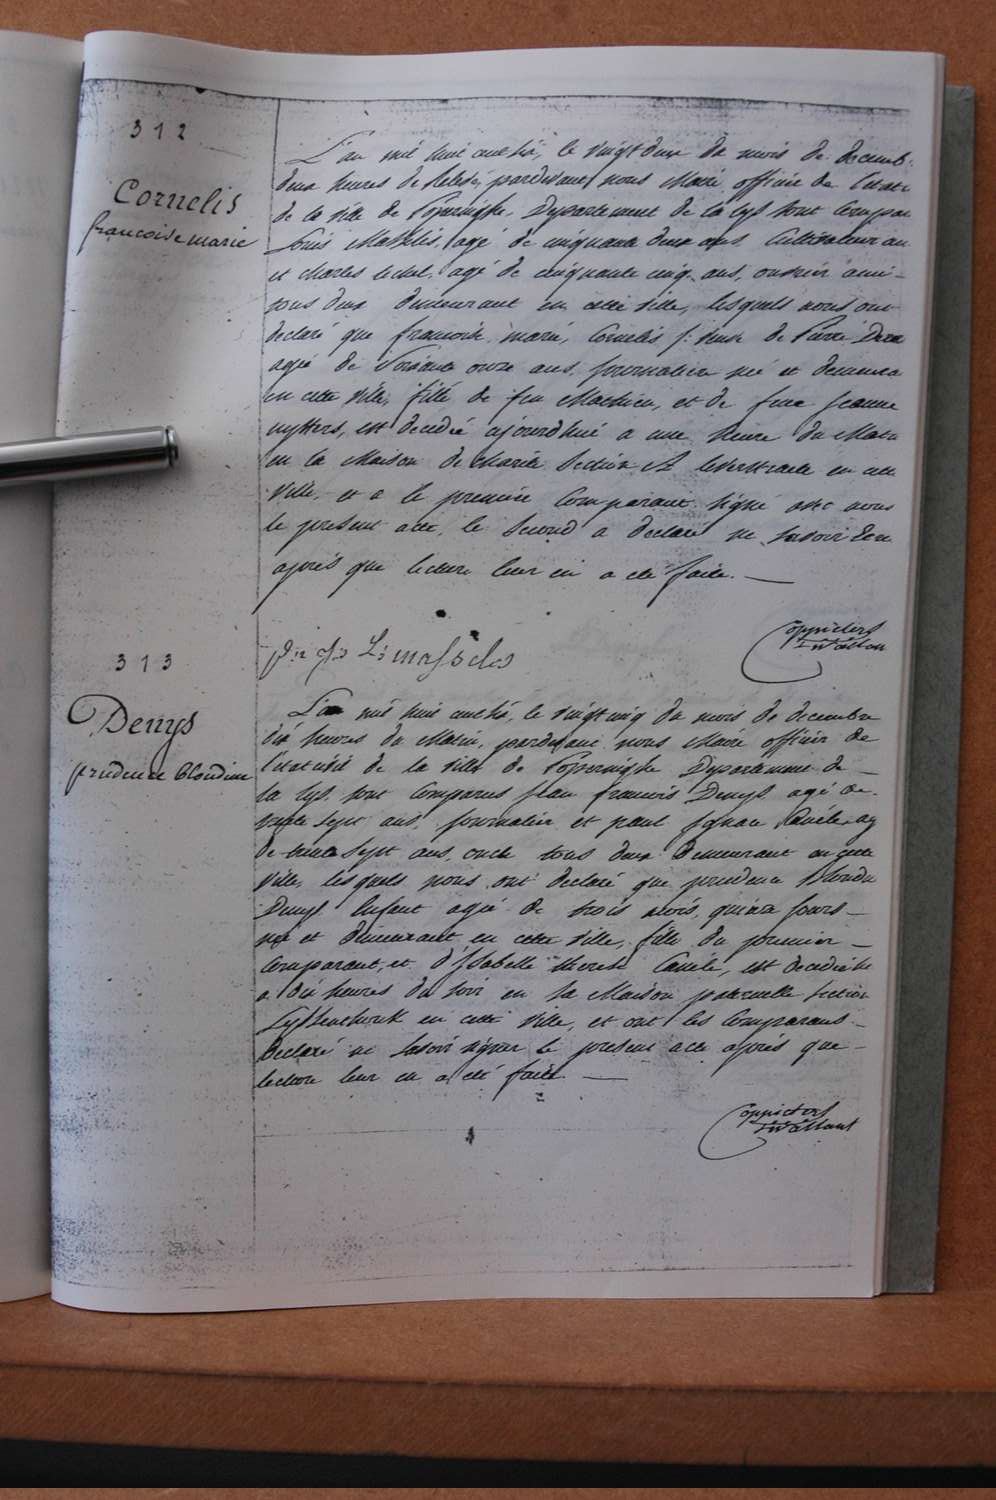 312
Cornelis
francoise marie
L'an mil huit cent dix, le vingt deux du mois de decemb.
deux heures de , pardevant nous Maire officier de l'etat
de la ville de Poperinghe, Departement de la Lys sont compar
Louis Masselis, agé de cinquante deux ans Cultivateur au
et charles , agé de cinquante cinq ans, ouvrier ami
tous deux demeurant en cette ville, lesquels nous ont
declaré que francoise marie, Cornelis veuve de Pierre
agée de ans, journaliere née et demeura
en cette ville, fille de feu Mathieu, et de feue Jeanne
, est decedée ajourdhui a une heure du Matin
en la Maison de Section A en cette
ville, et a le premier Comparant signé avec nous
le present acte, le Second a declaré ne savoir
après que lecture leur en a été faite. —
L: masselis
Coppieters
313
Denys
prudence Blondine
L'an mil huit cent dix, le vingt cinq du mois de decembre
dix heures du Matin, pardevant nous Maire officier de
l'etat civil de la ville de Poperinghe Departement de —
la Lys, sont Comparus jean francois Denys agé de
trente sept ans, journalier et paul Ignace agé
de trente sept ans, oncle tous deux demeurant en cette
ville, lesquels nous ont declaré que prudence Blondine
Denys Enfant agée de trois mois, quinze jours —
née et demeurant en cette ville, fille du premier —
Comparant, et d'Isabelle therese , est decedée
a dix heures du soir en sa Maison paternelle Section
en cette ville, et ont les Comparans —
declaré ne savoir signer le present acte après que —
lecture leur en a été faite —
Coppieters